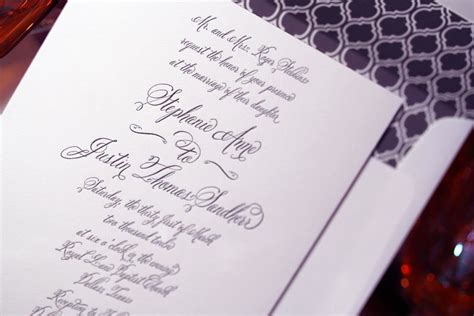 Mr. and Mrs. Roger
request the honor of your presence
at the marriage of their daughter
Stephanie Anne
to
Justin Thomas Sandherr
Saturday, the thirty first of March
two thousand twelve
at six o'clock in the evening
Royal Lane Baptist Church
Dallas, Texas
Reception to